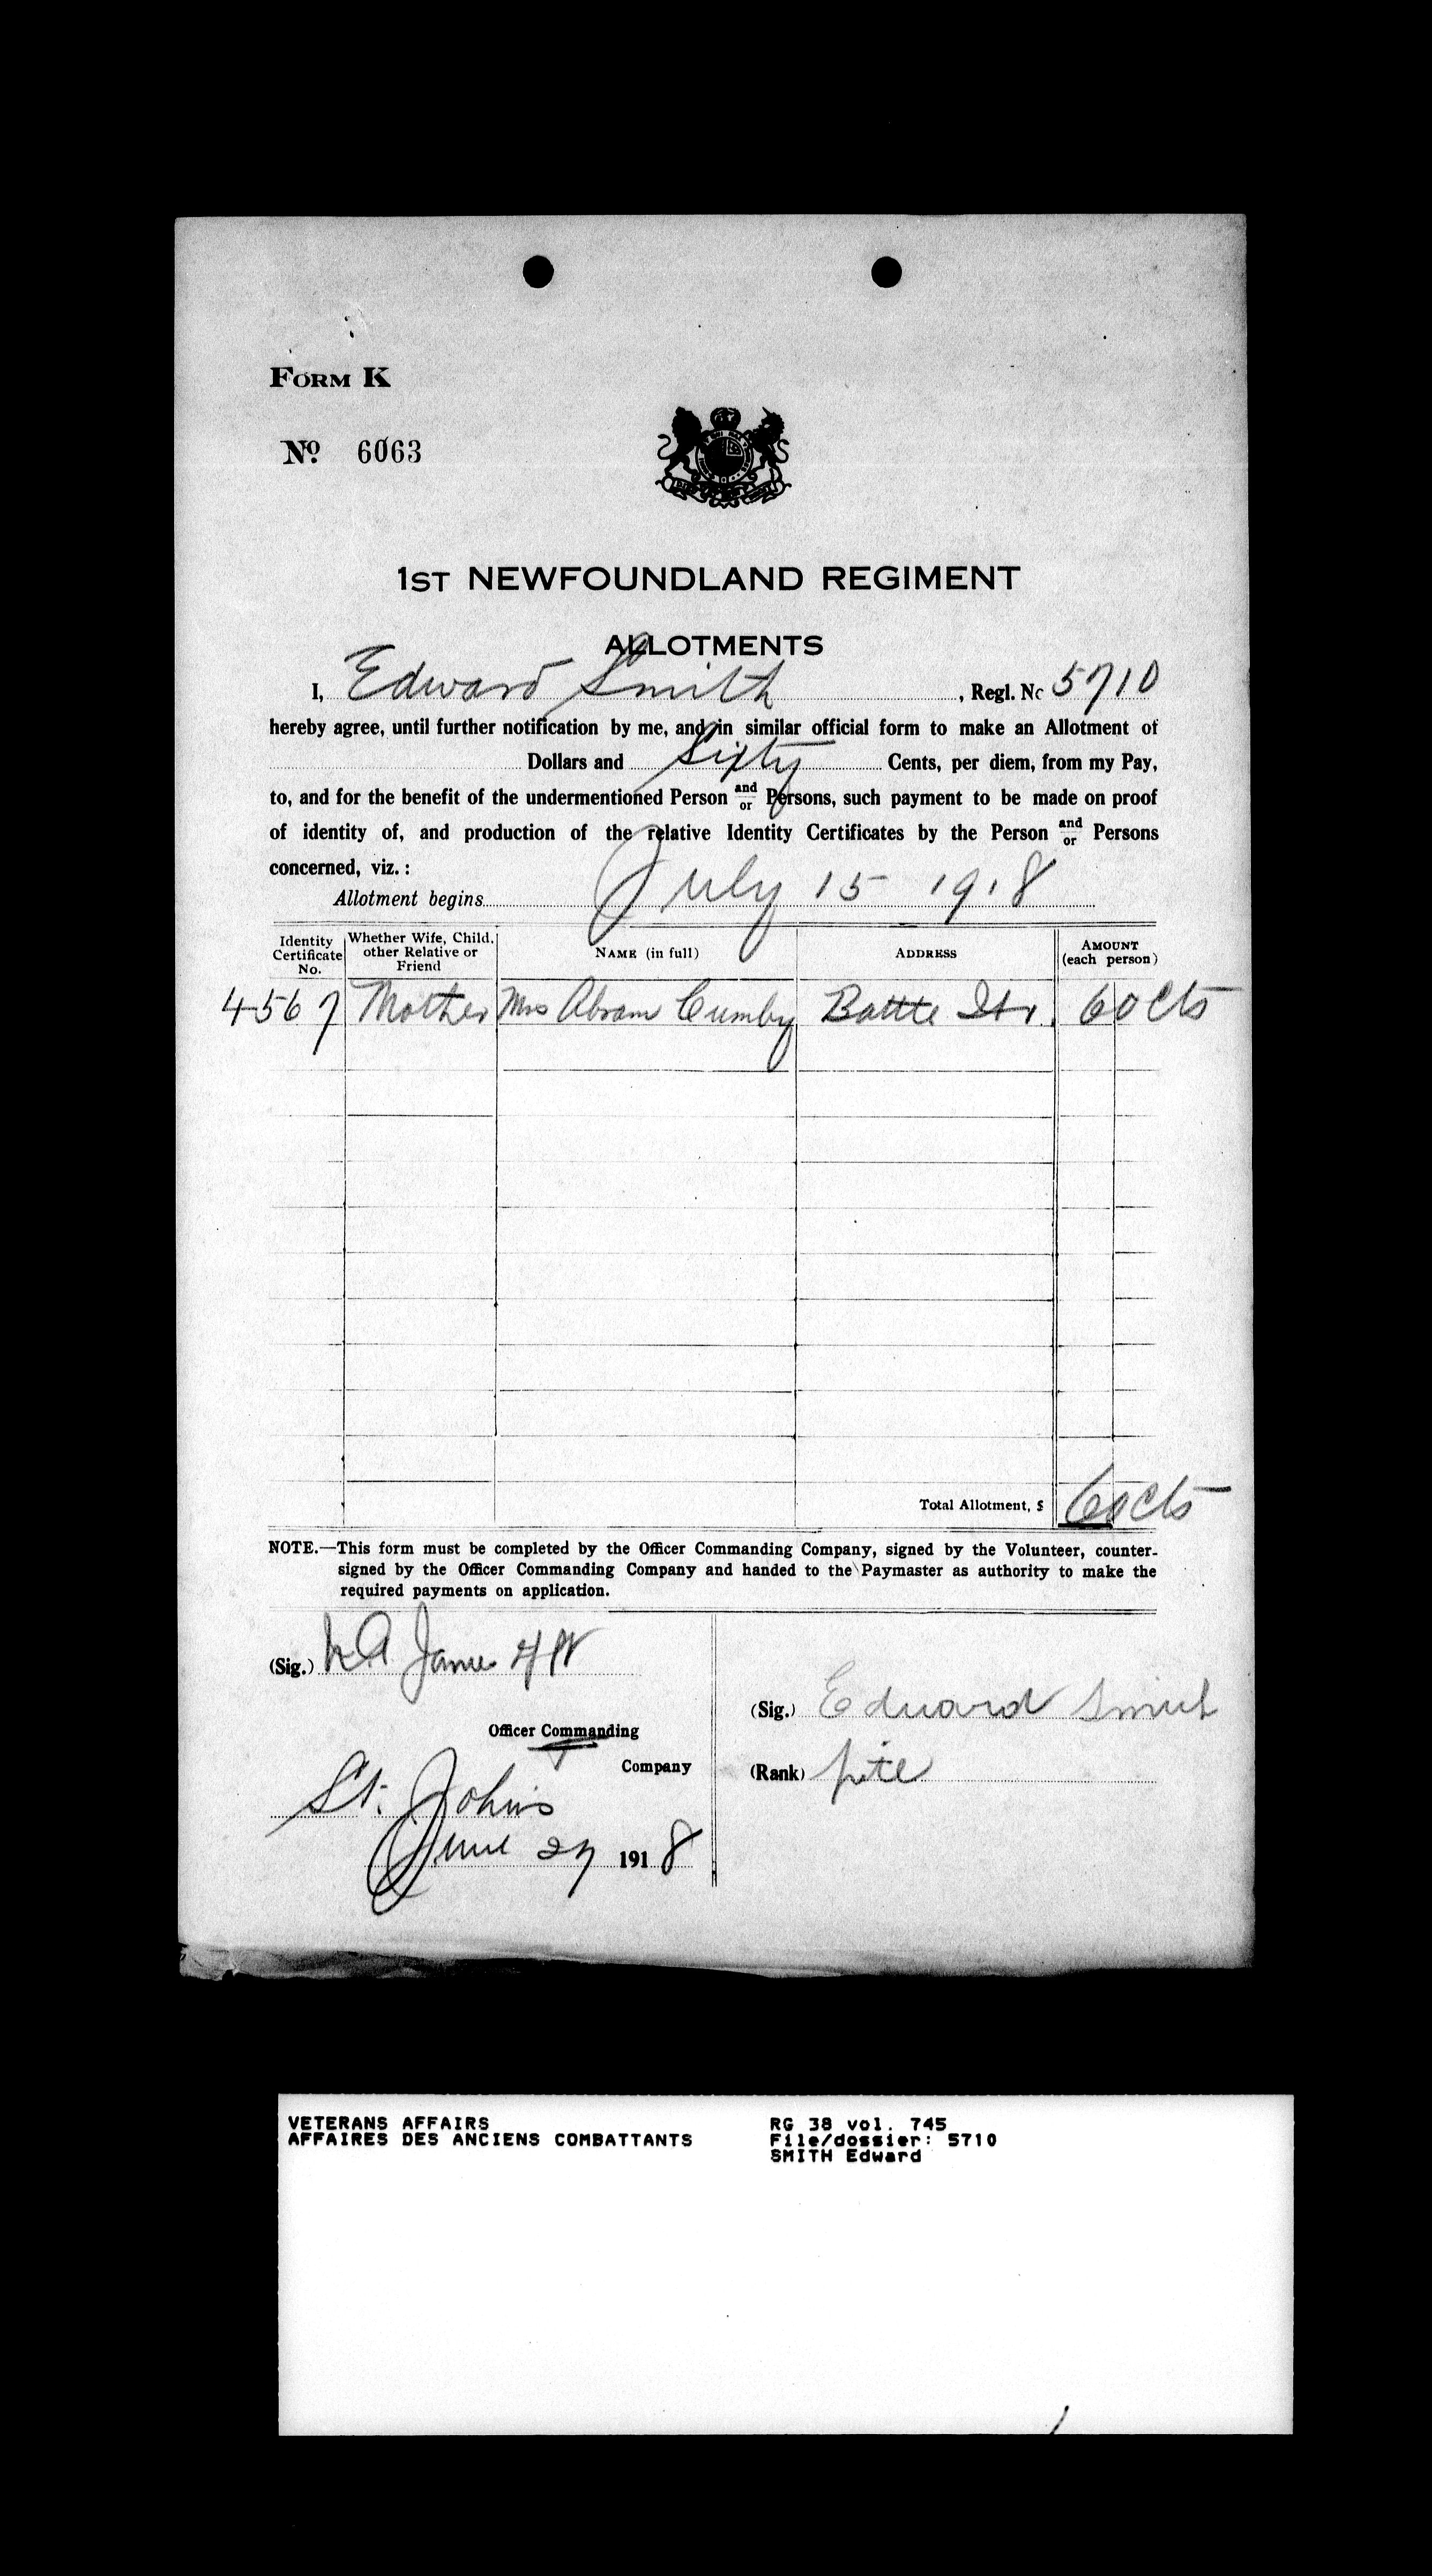 FORM K
No. 6063
1ST NEWFOUNDLAND REGIMENT
ALLOTMENTS
I, Edward Smith, Regl. No 5710
hereby agree, until further notification by me, and in similar official form to make an Allotment of
Dollars and Sixty Cents, per diem, from my Pay,
to, and for the benefit of the undermentioned Person and/or Persons, such payment to be made on proof
of identity of, and production of the relative Identity Certificates by the Person and/or Persons
concerned, viz.:
Allotment begins July 15 1918
Identity Certificate No. Whether Wife, Child, other Relative or Friend NAME (in full) ADDRESS AMOUNT (each person)
4567 Mother Mrs Abram Cumby Battle Hr. 60 Cts
Total Allotment, $ 60 Cts
NOTE.—This form must be completed by the Officer Commanding Company, signed by the Volunteer, counter-
signed by the Officer Commanding Company and handed to the Paymaster as authority to make the
required payments on application.
(Sig.) James
Officer Commanding
Company
St. John's
June 27 1918
(Sig.) Edward Smith
(Rank) pte
VETERANS AFFAIRS
AFFAIRES DES ANCIENS COMBATTANTS
RG 38 vol. 745
File/dossier: 5710
SMITH Edward